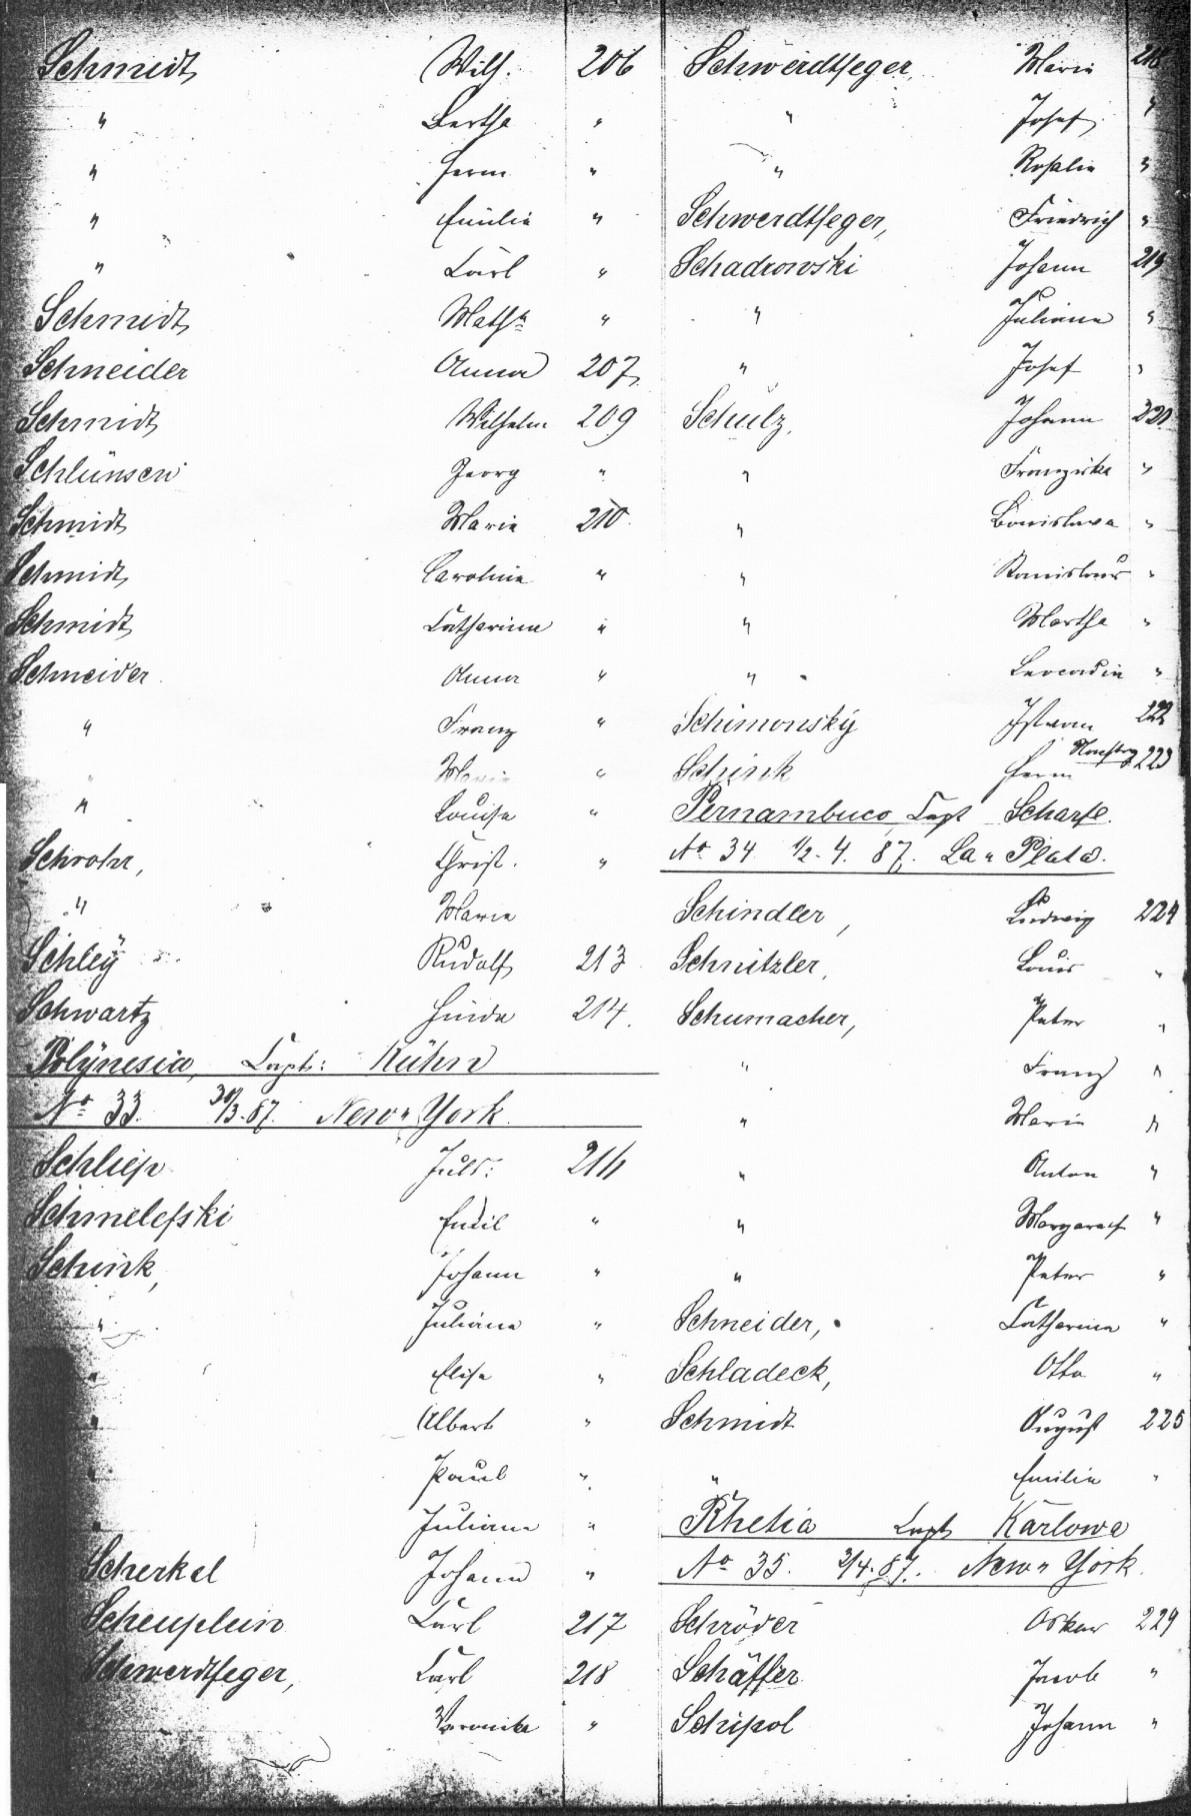 Schmidt Wilh. 206
" Bertha "
" Herm "
" Emilie "
" Carl "
Schmidt Math "
Schneider Anna 207
Schmidt Wilhelm 209
Schlünsen Georg "
Schmidt Marie 210
Schmidt Caroline "
Schmidt Catharina "
Schneider Anna "
" Franz "
" Marie "
" Louise "
Schrohr, Christ. "
" Marie
Schley Rudolf 213
Schwartz 214
Polynesia, Capt: Kühn
No 33. 30/3.87. New-York.
Schliep Juls: 216
Schmelefski Emil "
Schink, Johann "
" Juliane "
" Elise "
" Albert "
" Paul "
" Juliane "
Scherkel Johann "
Scheuplein Carl 217
Schwerdtfeger, Carl 218
Veronika "
Schwerdtfeger, Marie 218
" Josef "
" Rosalie "
Schwerdtfeger, Friedrich "
Schadrowski Johann 219
" Juliane "
" Josef "
Schulz, Johann 221
" Franziska "
" Bronislawa "
" Stanislaus "
" Martha "
" Leocadia "
Schimonský Istvan 222
Schink Herm 223
Pernambuco, Capt Scharfe.
No 34 1/2. 4. 87. La-Plata.
Schindler, Ludwig 224
Schnitzler, Louis "
Schumacher, Peter "
" Franz "
" Marie "
" Anton "
" Margareth "
" Peter "
Schneider, Catharina "
Schladeck, Otto "
Schmidt August 225
" Emilie "
Rhetia Capt Karlowa
No 35. 3/4.87. New-York.
Schröder Oskar 229
Schäffer Jacob "
Schipol Johann "